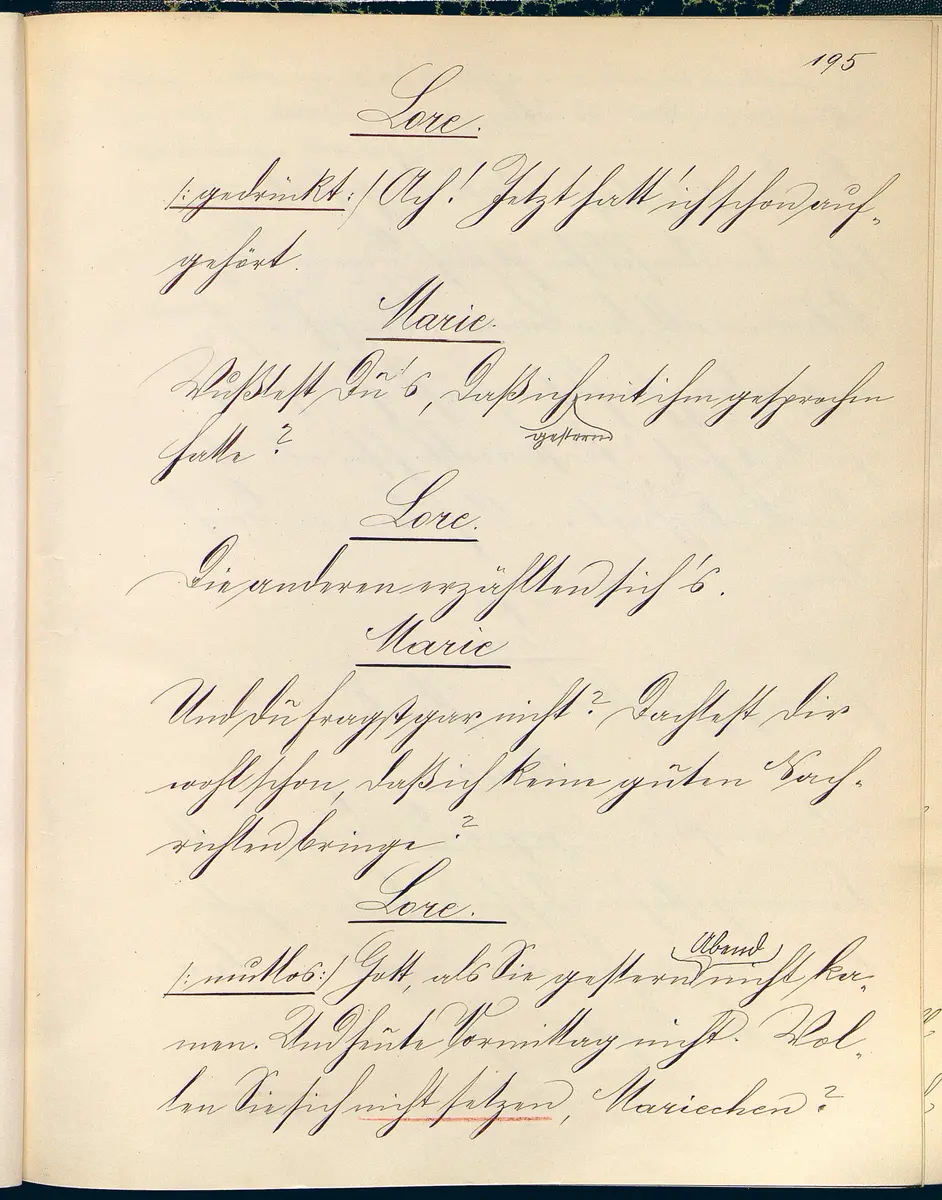 195
Lore.
/: gedrückt :/ Ach! Jetzt hatt' ich schon auf-
gehört.
Marie.
Wußtest Du's, daß ich mit ihm gesprochen
gestern
hatte?
Lore.
Die anderen erzählten sich's.
Marie
Und du fragst gar nicht? Dachtest dir
wohl schon, daß ich keine guten Nach-
richten bringe?
Lore.
Abend
/: mutlos :/ Gott, als Sie gestern nicht ka-
men. Und heute Vormittag nicht. Wol-
len Sie sich nicht setzen, Mariechen?